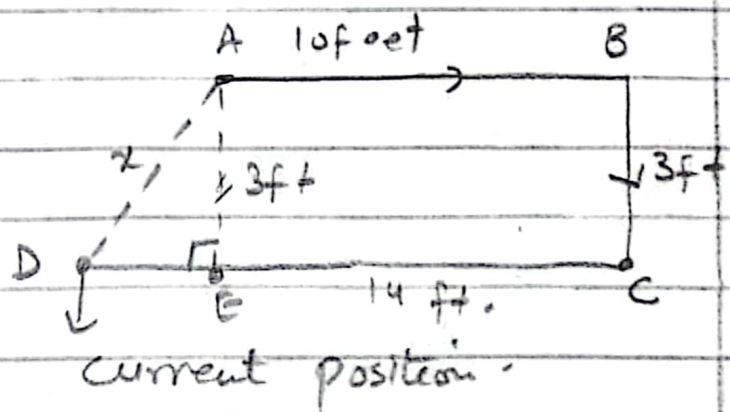 A 10feet B
x 3ft 3ft
D E 14 ft. C
Current position.